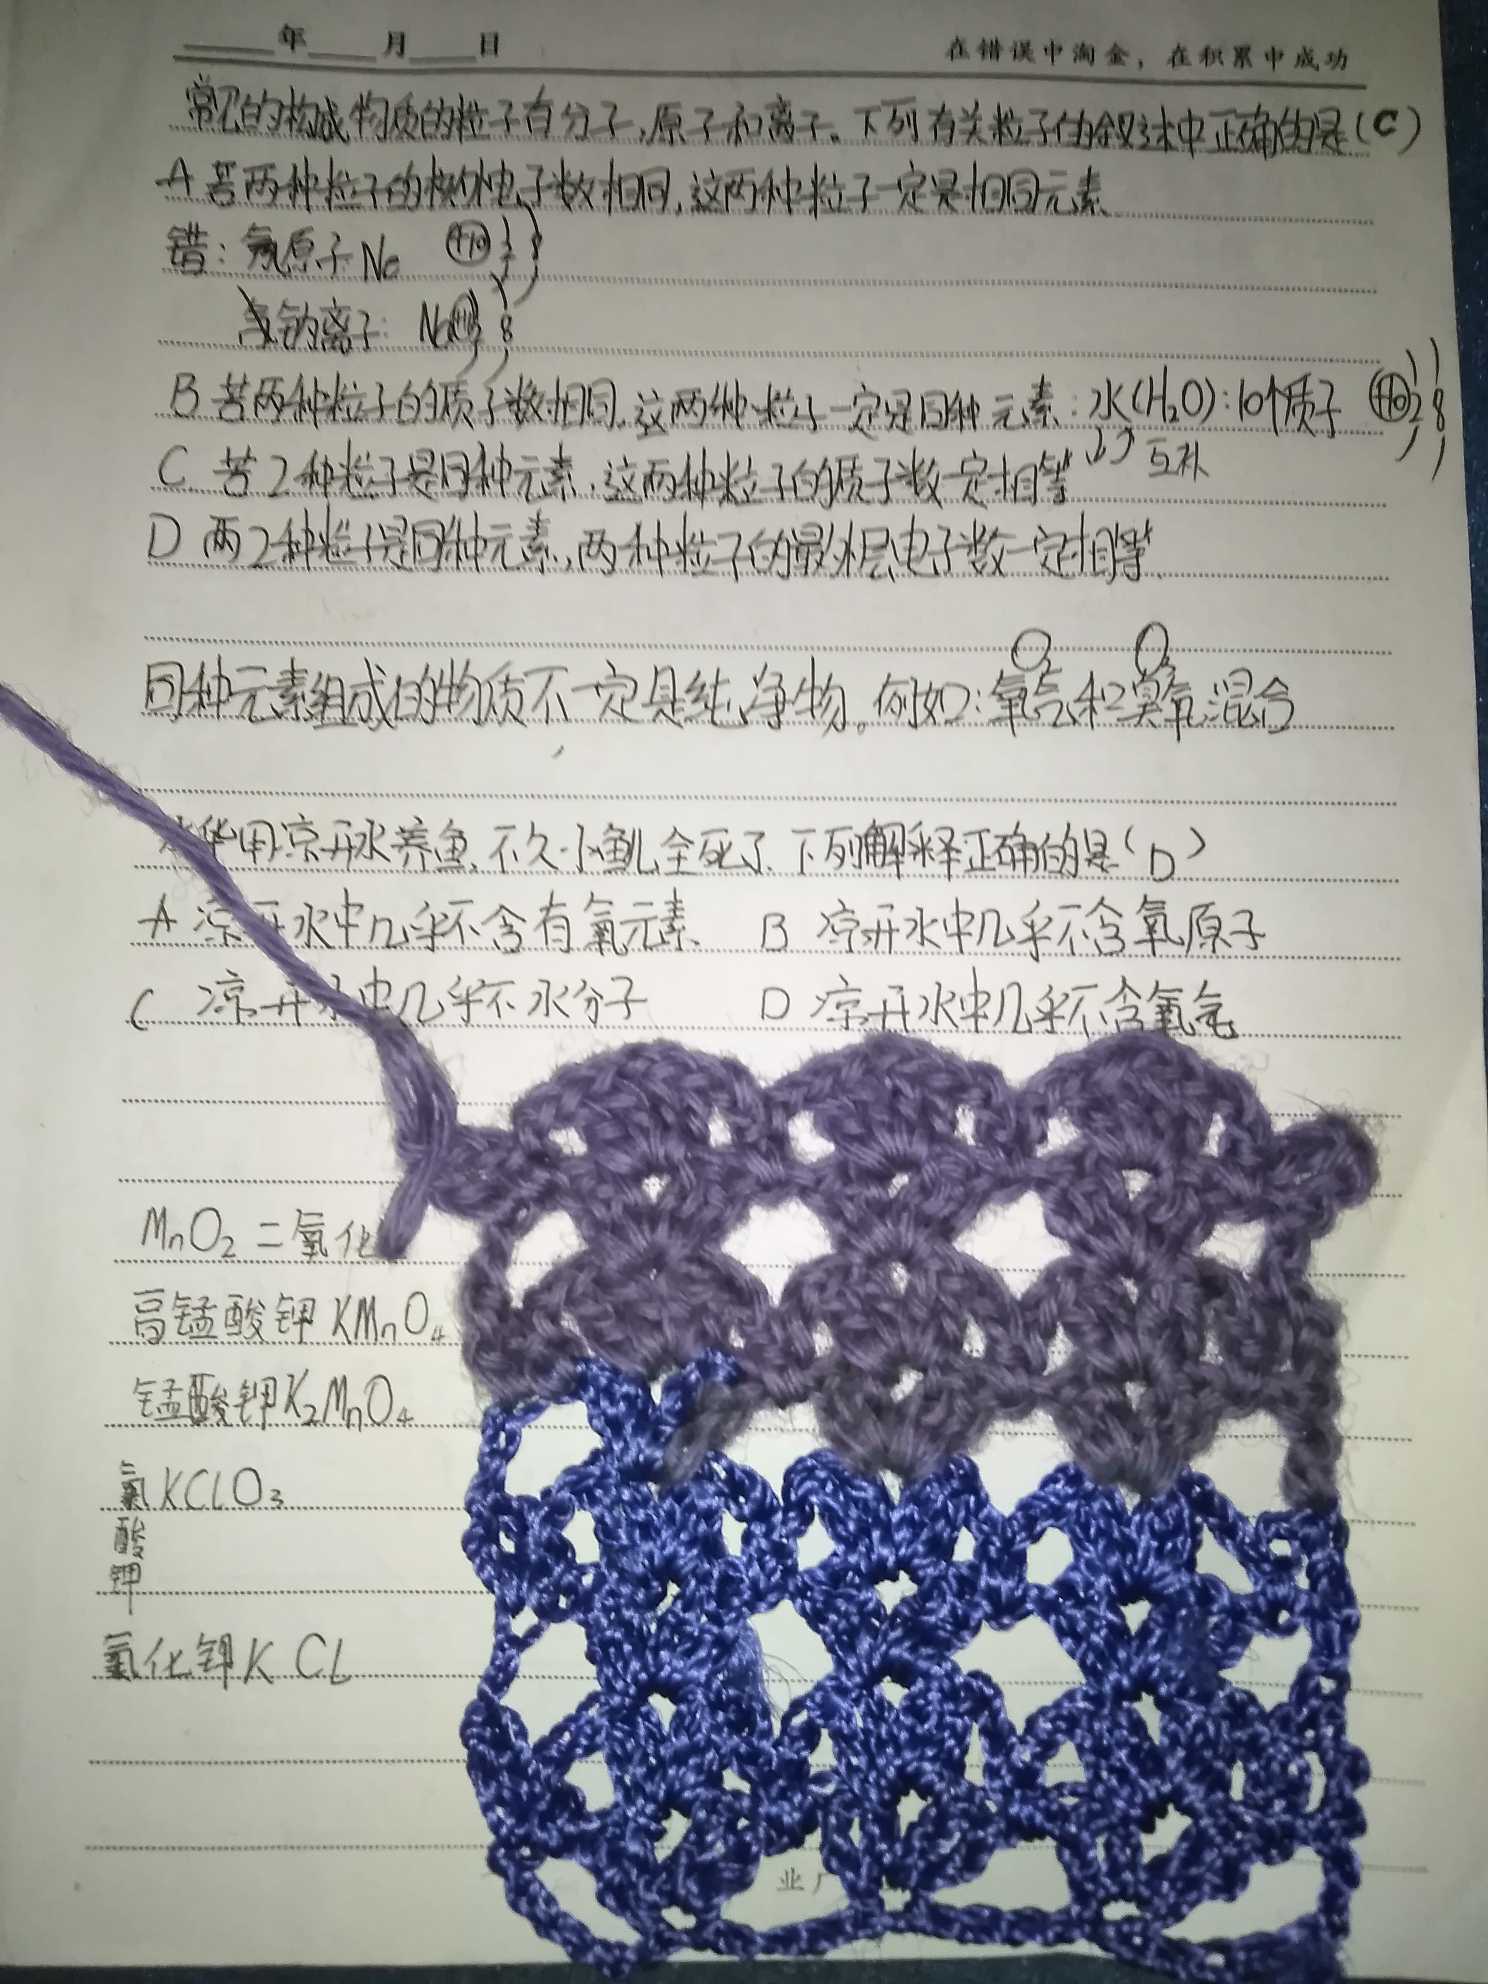 年 月 日
在错误中淘金，在积累中成功
常见的构成物质的粒子有分子，原子和离子。下列有关粒子的叙述中正确的是(C)
A 若两种粒子的核外电子数相同，这两种粒子一定是相同元素
错：氖原子 Ne +10 2 8
钠离子： Na +11 2 8
B 若两种粒子的质子数相同，这两种粒子一定是同种元素：水(H2O)：10个质子 +10 2 8
C 若2种粒子是同种元素，这两种粒子的质子数一定相等 互补
D 两2种粒子是同种元素，两种粒子的最外层电子数一定相等
O2 O3
同种元素组成的物质不一定是纯净物。例如：氧气和臭氧混合
华用凉开水养鱼，不久小鱼儿全死了，下列解释正确的是(D)
A 凉开水中几乎不含有氧元素 B 凉开水中几乎不含氧原子
C 凉开水中几乎不水分子 D 凉开水中几乎不含氧气
MnO2 二氧化
高锰酸钾 KMnO4
锰酸钾 K2MnO4
氯 KClO3
酸
钾
氯化钾 K Cl
业